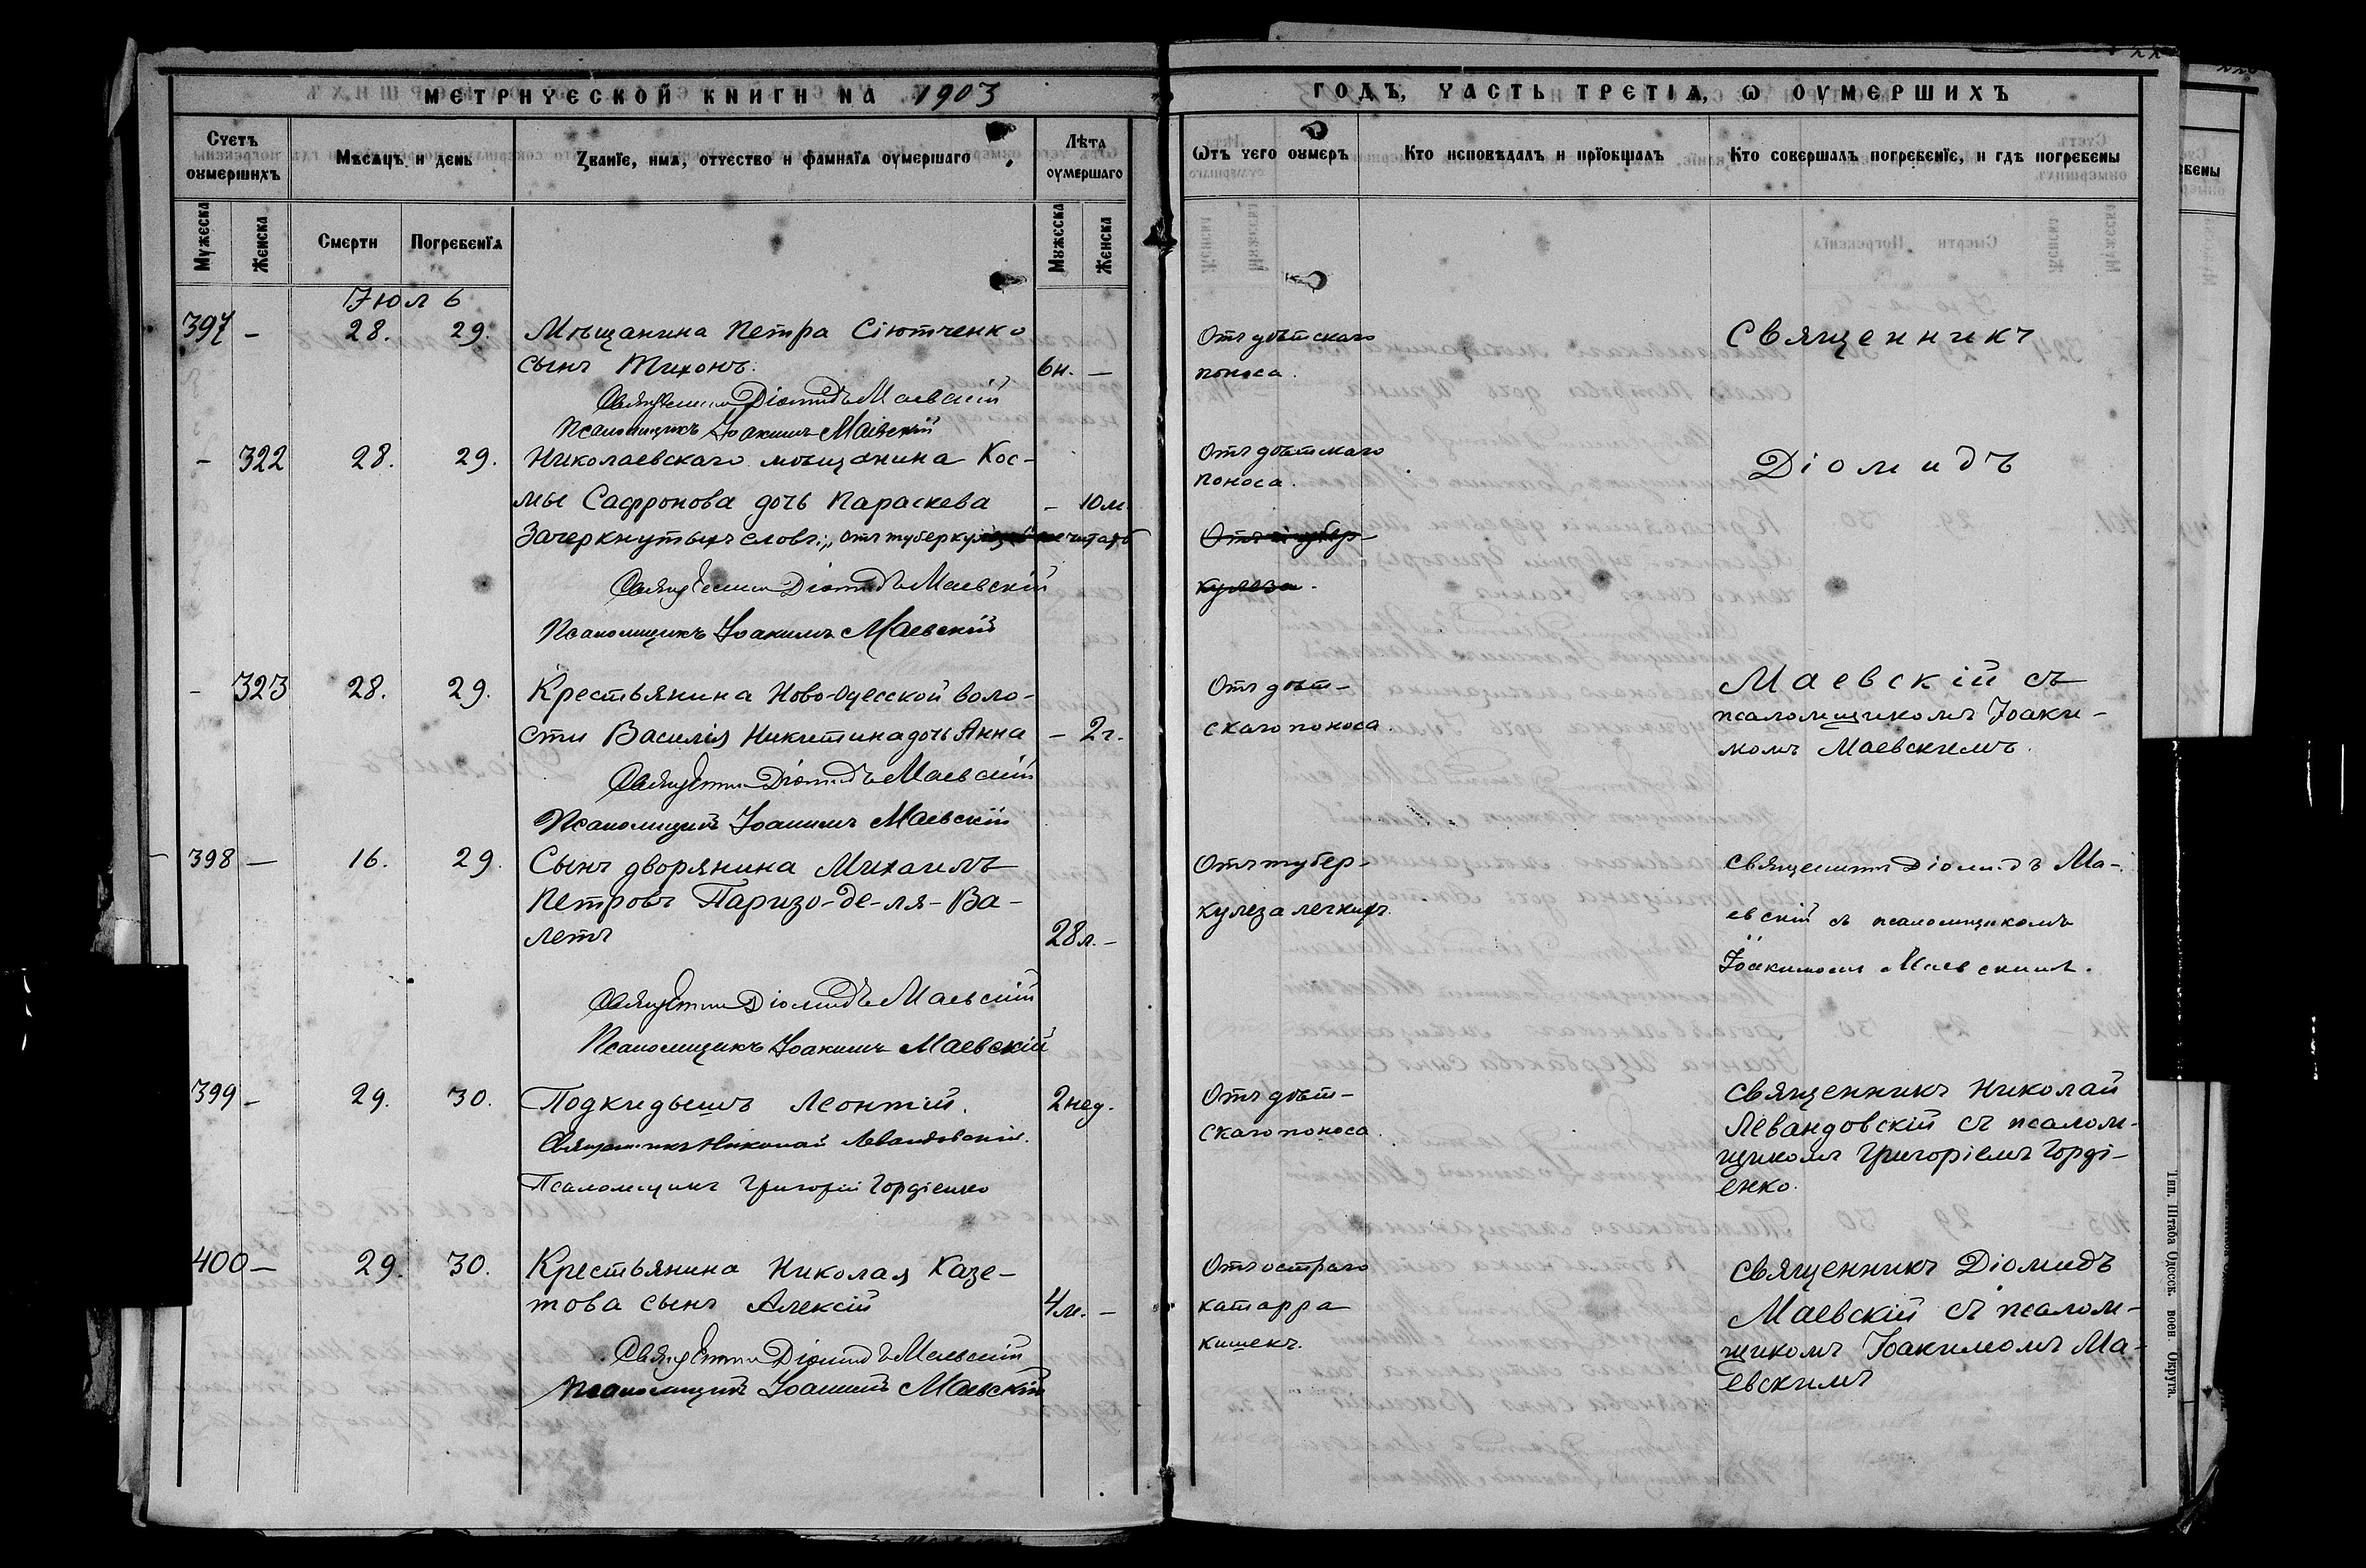 МЕТРИЧЕСКОЙ КНИГИ НА 1903
Счетъ оумершихъ
Мѣсяцъ и день
Званіе, имя, отчество и фамилія оумершаго
Лѣта оумершаго
Мужеска
Женска
Смерти
Погребенія
Мужеска
Женска
Іюль
397 — 28. 29. Мѣщанина Петра Сіютченко
сынъ Тихонъ. 6н. —
Священникъ Діомидъ Маевскій
Псаломщикъ Іоакимъ Маевскій
— 322 28. 29. Николаевскаго мѣщанина Кос-
мы Сафронова дочь Параскева — 10м.
Зачеркнутыхъ словъ: „отъ туберкулеза" не читать
Священникъ Діомидъ Маевскій
Псаломщикъ Іоакимъ Маевскій
— 323 28. 29. Крестьянина Ново-Одесской воло-
сти Василія Никитина дочь Анна — 2г.
Священникъ Діомидъ Маевскій
Псаломщикъ Іоакимъ Маевскій
398 — 16. 29. Сынъ дворянина Михаилъ
Петровъ Паризо-де-ля-Ва-
летъ 28л. —
Священникъ Діомидъ Маевскій
Псаломщикъ Іоакимъ Маевскій
399 — 29. 30. Подкидышъ Леонтій. 2нед.
Священникъ Николай Левандовскій.
Псаломщикъ Григорій Гордіенко
400 — 29. 30. Крестьянина Николая Казе-
това сынъ Алексій 4м. —
Священникъ Діомидъ Маевскій
Псаломщикъ Іоакимъ Маевскій
ГОДЪ, ЧАСТЬ ТРЕТІЯ, Ѡ ОУМЕРШИХЪ
Ѡтъ чего оумеръ
Кто исповѣдалъ и пріобщалъ
Кто совершалъ погребеніе, и гдѣ погребены
Отъ дѣтскаго
поноса.
Священникъ
Отъ дѣтскаго
поноса.
Діомидъ
Отъ тубер-
кулеза.
Отъ дѣт-
скаго поноса.
Маевскій съ
псаломщикомъ Іоаки-
момъ Маевскимъ.
Отъ тубер-
кулеза легкихъ.
Священникъ Діомидъ Ма-
евскій съ псаломщикомъ
Іоакимомъ Маевскимъ.
Отъ дѣт-
скаго поноса.
Священникъ Николай
Левандовскій съ псалом-
щикомъ Григоріемъ Горді-
енко.
Отъ остраго
катарра
кишекъ.
Священникъ Діомидъ
Маевскій съ псалом-
щикомъ Іоакимомъ Ма-
евскимъ
Тип. Штаба Одесск. воен. Округа.
бены